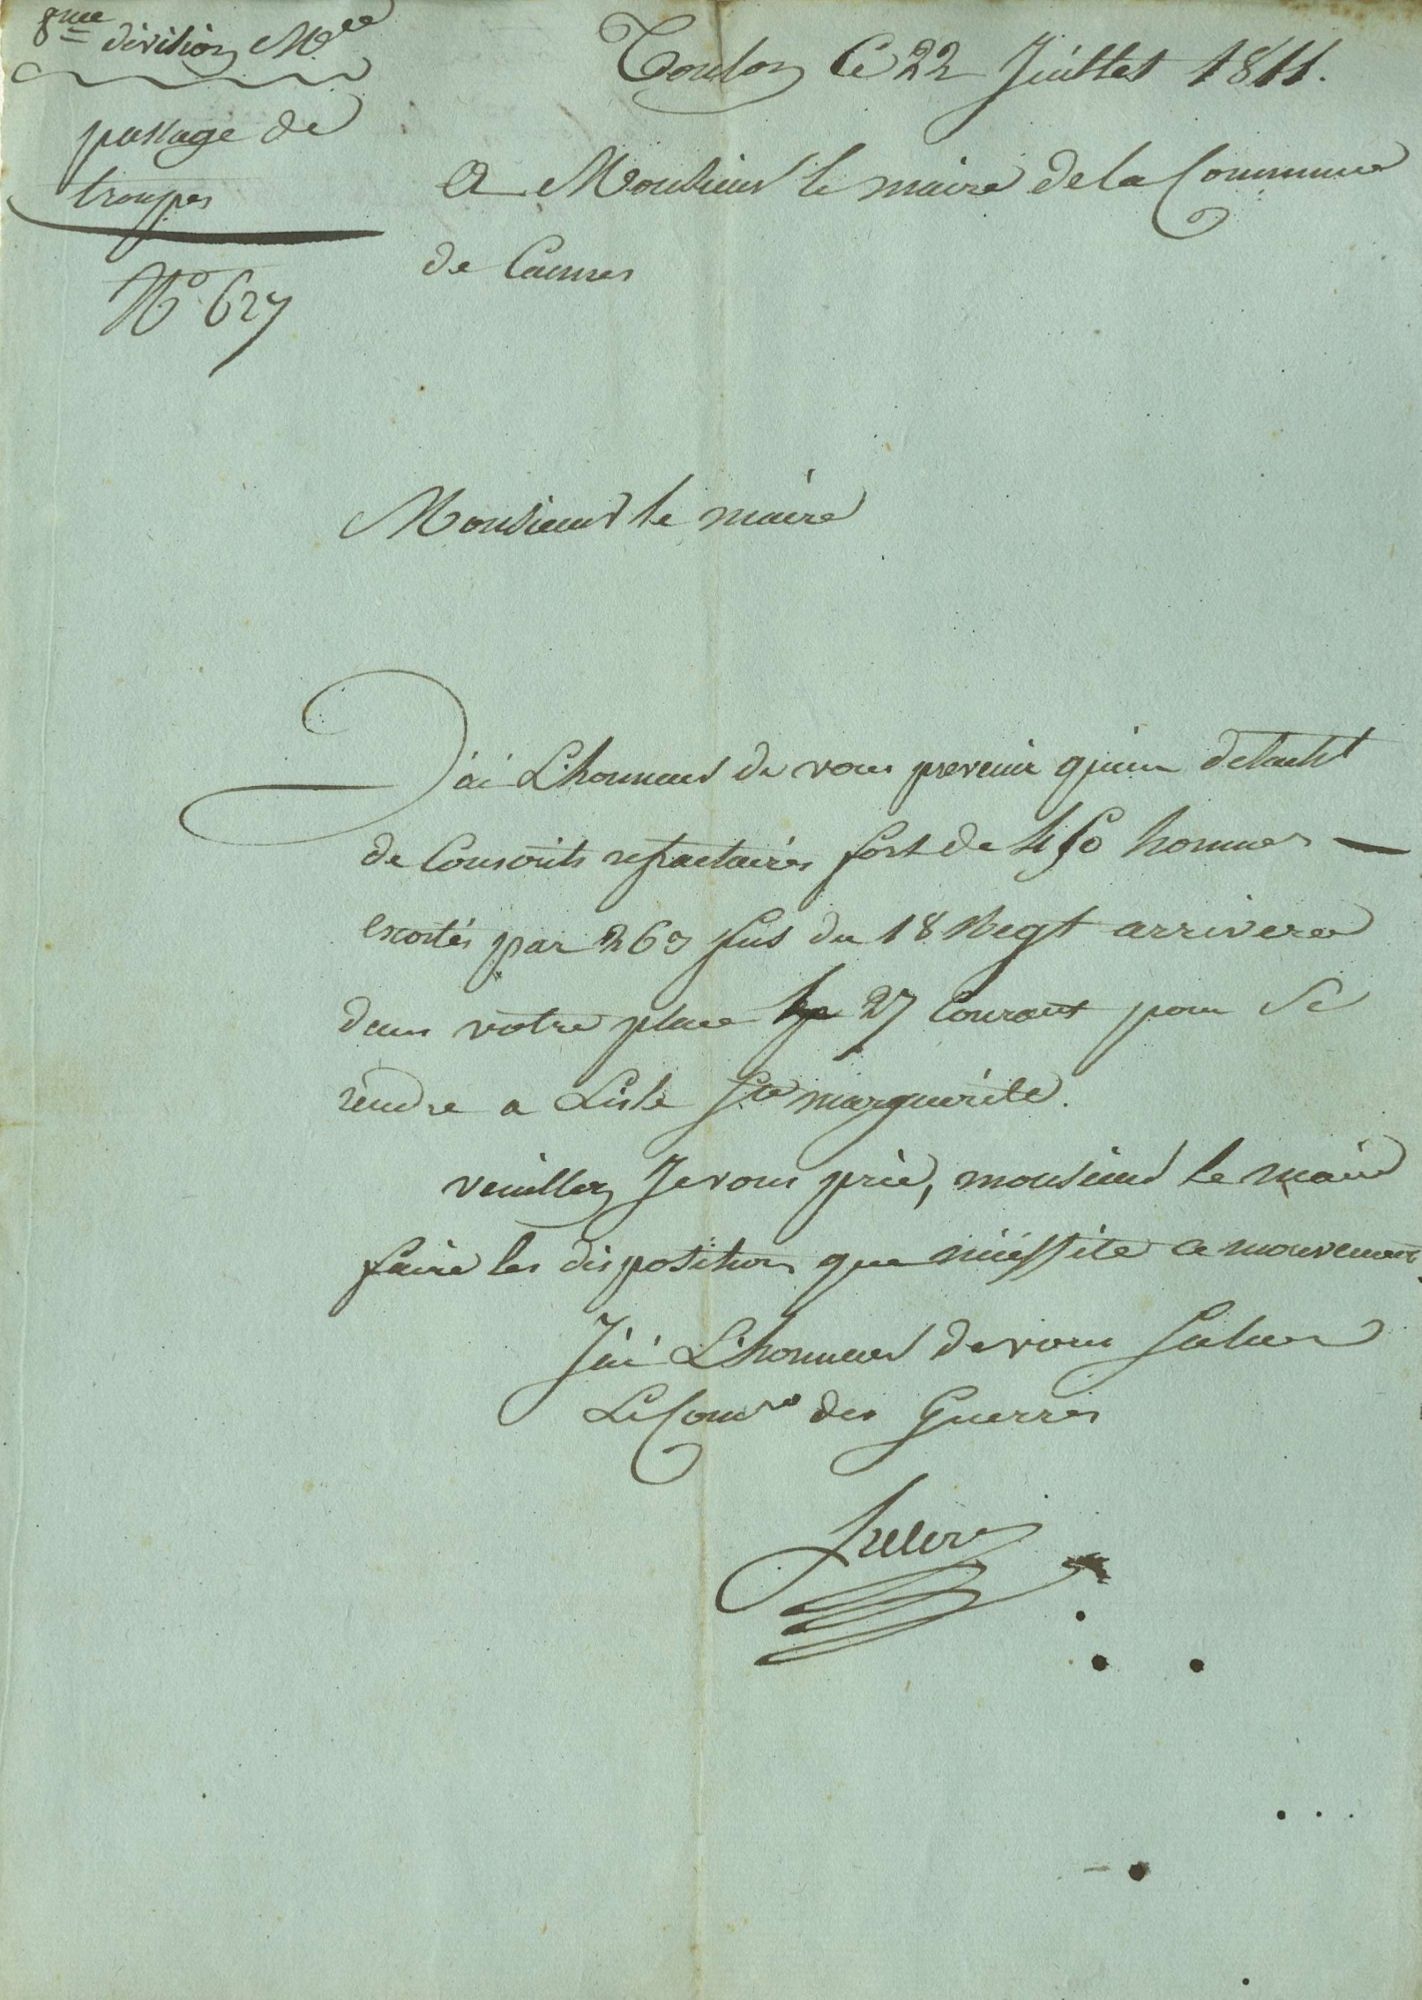 8me division Mre
passage de
troupes
No 627
Toulon Ce 22 Juillet 1811.
A Monsieur le maire de la Commune
de Cannes
Monsieur le maire
J'ai L'honneur de vous prevenir qu'un detacht
de Conscrits refractaires fort de 450 hommes
escortés par 260 fus du 18 Regt arrivera
dans votre place le 27 Courant pour Se
rendre a Lisle Ste marguerite.
veuillez Je vous prie, monsieur le maire
faire les dispositions que nécéssite ce mouvement.
J'ai L'honneur de vous Saluer
Le Comre des Guerres